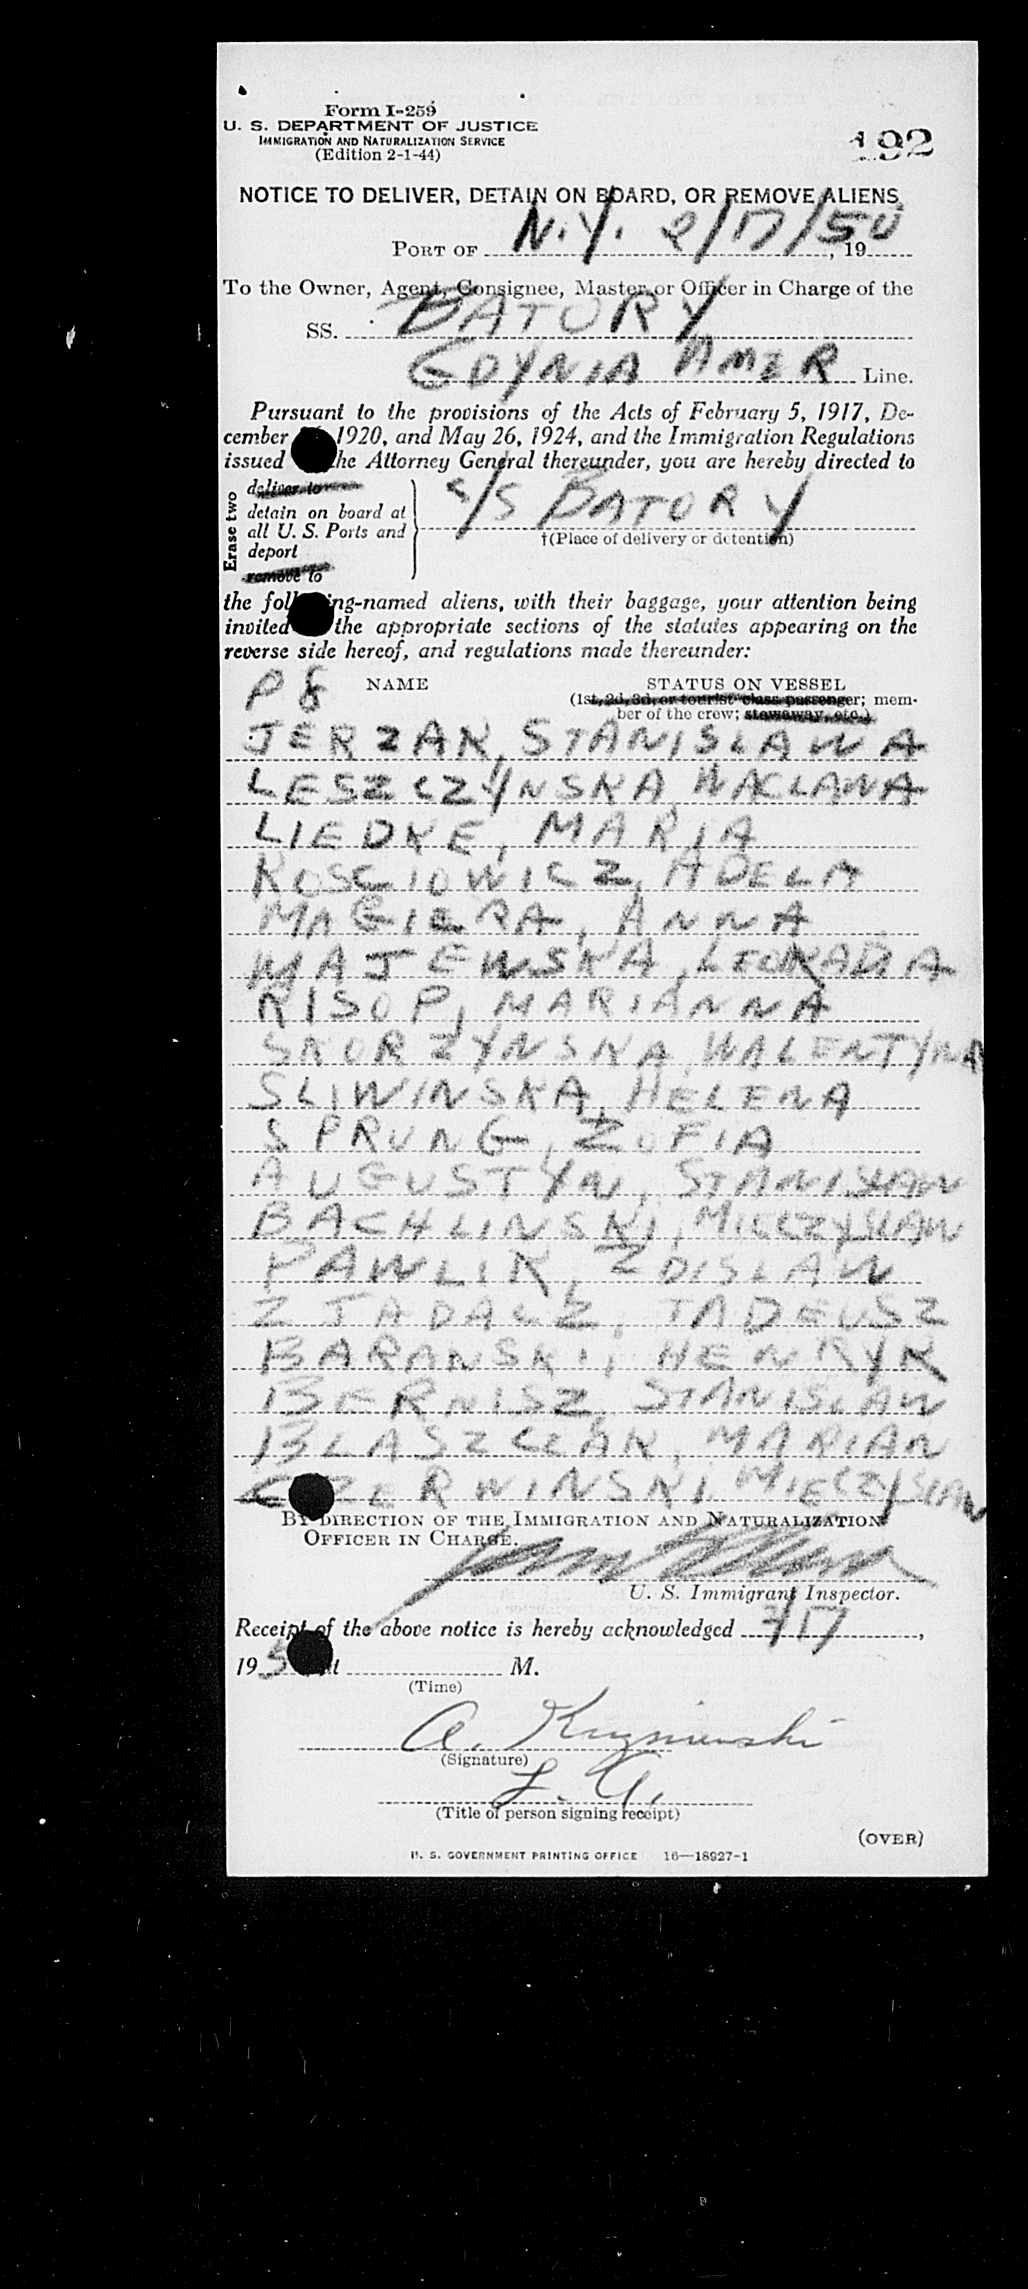 Form I-259
U. S. DEPARTMENT OF JUSTICE
IMMIGRATION AND NATURALIZATION SERVICE
(Edition 2-1-44)
192
NOTICE TO DELIVER, DETAIN ON BOARD, OR REMOVE ALIENS
PORT OF N.Y. 2/17/50, 19
To the Owner, Agent, Consignee, Master or Officer in Charge of the
SS. BATORY
GDYNIA AMER Line.
Pursuant to the provisions of the Acts of February 5, 1917, De-
cember 1920, and May 26, 1924, and the Immigration Regulations
issued the Attorney General thereunder, you are hereby directed to
Erase two
deliver to
detain on board at
all U. S. Ports and
deport
remove to
S/S BATORY
†(Place of delivery or detention)
the following-named aliens, with their baggage, your attention being
invited the appropriate sections of the statutes appearing on the
reverse side hereof, and regulations made thereunder:
P 8 NAME STATUS ON VESSEL
(1st, 2d, 3d, or tourist class passenger; mem-
ber of the crew; stowaway, etc.)
JERZAK, STANISLAWA
LESZCZYNSKA, WACLAWA
LIEDKE, MARIA
KOSCIOWICZ, ADELA
MAGIERA, ANNA
MAJEWSKA, LEOKADIA
RISOP, MARIANNA
SKORZYNSKA, WALENTYNA
SLIWINSKA, HELENA
SPRUNG, ZOFIA
AUGUSTYN, STANISLAW
BACHLINSKI, MIECZYSLAW
PAWLIK, ZDISLAW
ZJADACZ, TADEUSZ
BARANSKI, HENRYK
BERNISZ, STANISLAW
BLASZCZAK, MARIAN
CZERWINSKI, MIECZYSLAW
BY DIRECTION OF THE IMMIGRATION AND NATURALIZATION
OFFICER IN CHARGE.
U. S. Immigrant Inspector.
Receipt of the above notice is hereby acknowledged 2/17,
195 M.
(Time)
A.
(Signature)
(Title of person signing receipt)
(OVER)
U. S. GOVERNMENT PRINTING OFFICE 16—18927-1